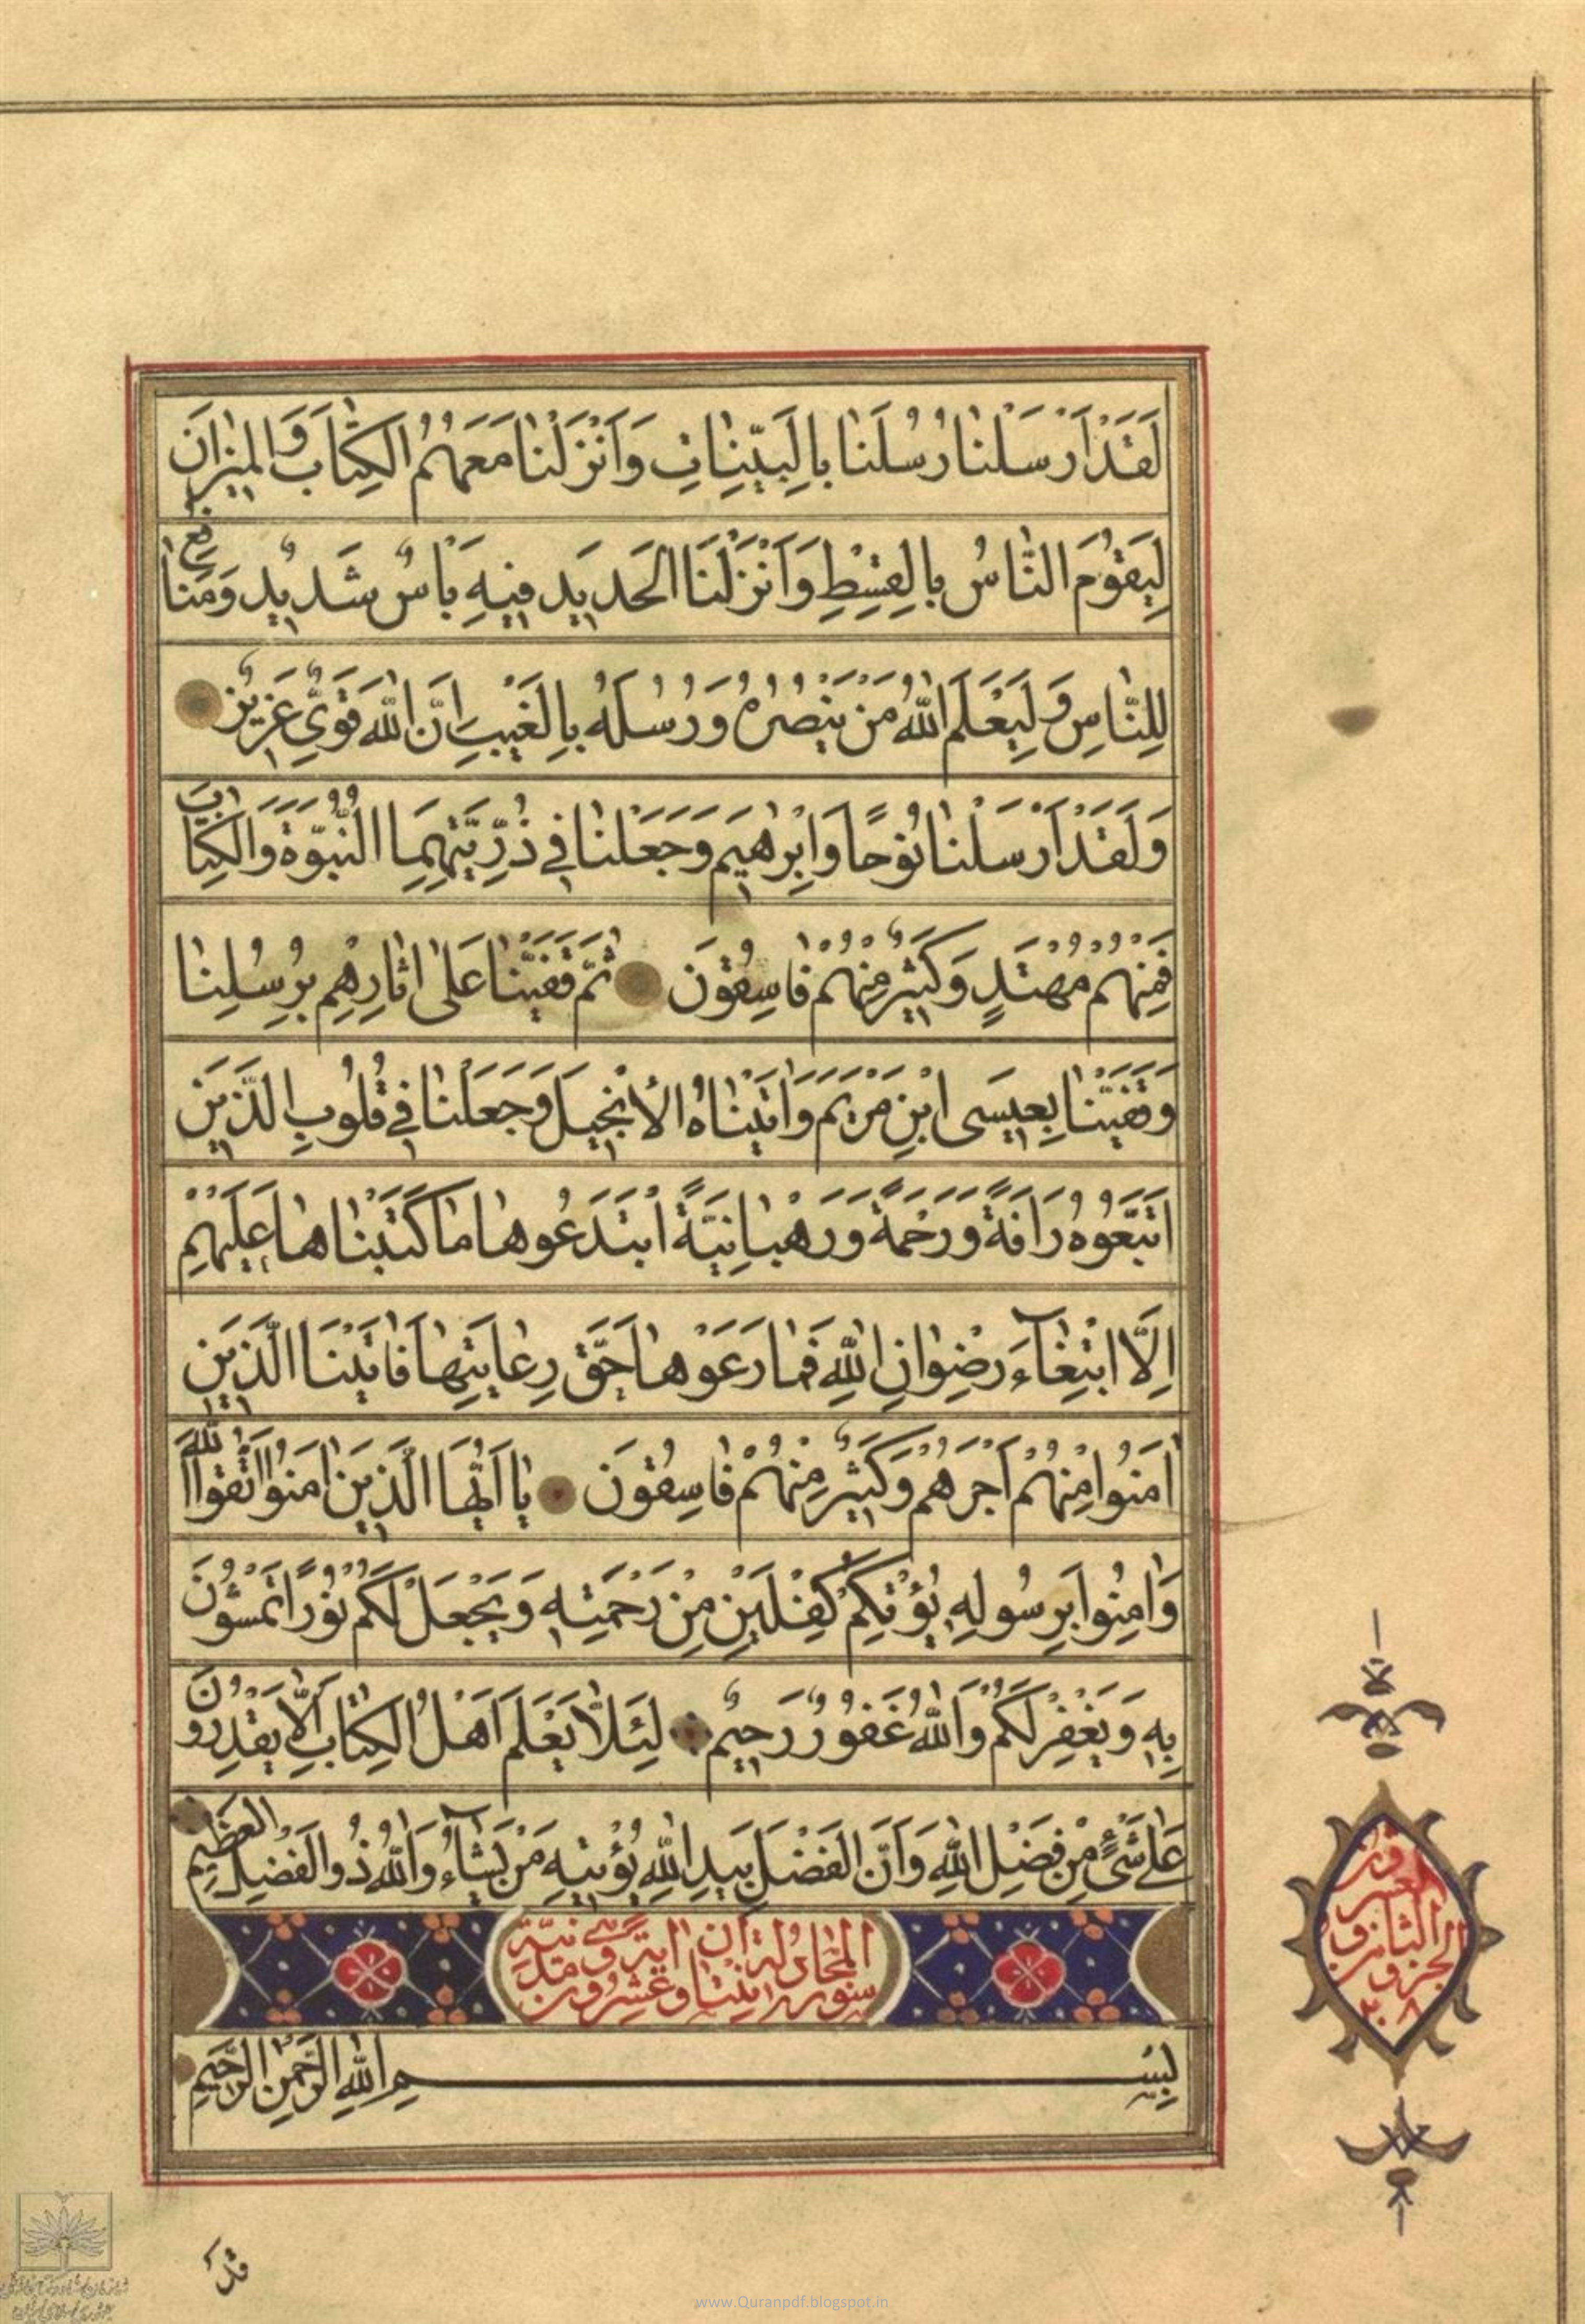 لَقَدْ اَرْسَلْنٰا رُسُلَنٰا بِالْبَيِّنٰاتِ وَاَنْزَلْنٰا مَعَهُمُ الْكِتٰابَ وَالْمِيزٰانَ
لِيَقُومَ النّٰاسُ بِالْقِسْطِ وَاَنْزَلْنَا الْحَديدَ فيهِ بَاْسٌ شَديدٌ وَمَنٰافِعُ
لِلنّٰاسِ وَلِيَعْلَمَ اللّٰهُ مَنْ يَنْصُرُهُ وَرُسُلَهُ بِالْغَيْبِ اِنَّ اللّٰهَ قَوِيٌّ عَزيزٌ
وَلَقَدْ اَرْسَلْنٰا نُوحًا وَاِبْرٰهيمَ وَجَعَلْنٰا في ذُرِّيَّتِهِمَا النُّبُوَّةَ وَالْكِتٰابَ
فَمِنْهُمْ مُهْتَدٍ وَكَثيرٌ مِنْهُمْ فٰاسِقُونَ ثُمَّ قَفَّيْنٰا عَلىٰ اٰثٰارِهِمْ بِرُسُلِنٰا
وَقَفَّيْنٰا بِعيسَى ابْنِ مَرْيَمَ وَاٰتَيْنٰاهُ الْاِنْجيلَ وَجَعَلْنٰا في قُلُوبِ الَّذينَ
اتَّبَعُوهُ رَاْفَةً وَرَحْمَةً وَرَهْبٰانِيَّةً ابْتَدَعُوهٰا مٰا كَتَبْنٰاهٰا عَلَيْهِمْ
اِلَّا ابْتِغٰآءَ رِضْوٰانِ اللّٰهِ فَمٰا رَعَوْهٰا حَقَّ رِعٰايَتِهٰا فَاٰتَيْنَا الَّذينَ
اٰمَنُوا مِنْهُمْ اَجْرَهُمْ وَكَثيرٌ مِنْهُمْ فٰاسِقُونَ يٰا اَيُّهَا الَّذينَ اٰمَنُوا اتَّقُوا اللّٰهَ
وَاٰمِنُوا بِرَسُولِهِ يُؤْتِكُمْ كِفْلَيْنِ مِنْ رَحْمَتِهِ وَيَجْعَلْ لَكُمْ نُورًا تَمْشُونَ
بِهِ وَيَغْفِرْ لَكُمْ وَاللّٰهُ غَفُورٌ رَحيمٌ لِئَلّٰا يَعْلَمَ اَهْلُ الْكِتٰابِ اَلّٰا يَقْدِرُونَ
عَلىٰ شَيْءٍ مِنْ فَضْلِ اللّٰهِ وَاَنَّ الْفَضْلَ بِيَدِ اللّٰهِ يُؤْتيهِ مَنْ يَشٰآءُ وَاللّٰهُ ذُو الْفَضْلِ الْعَظيمِ
سورة المجادلة اثنتا وعشرون اية وهي مدنية
بِسْمِ اللّٰهِ الرَّحْمٰنِ الرَّحيمِ
الجزو الثامن و العشرون
٢٨
قَدْ
www.Quranpdf.blogspot.in